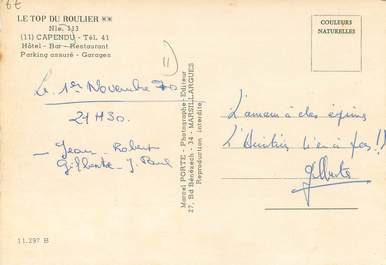 6€
LE TOP DU ROULIER **
Nle. 113
(11) CAPENDU - Tél. 41
Hôtel - Bar - Restaurant
Parking assuré - Garages
11
COULEURS
NATURELLES
Le 1er Novembre 70
21H30.
Jean. Robert
Gilberte - J. Paul
Marcel PORTE - Photographe-Editeur
27, Bd Bénézech - 34 - MARSILLARGUES
Reproduction interdite
L'amour a des épines
L'Amitié n'en a pas !!
Gilberte
11.297 B